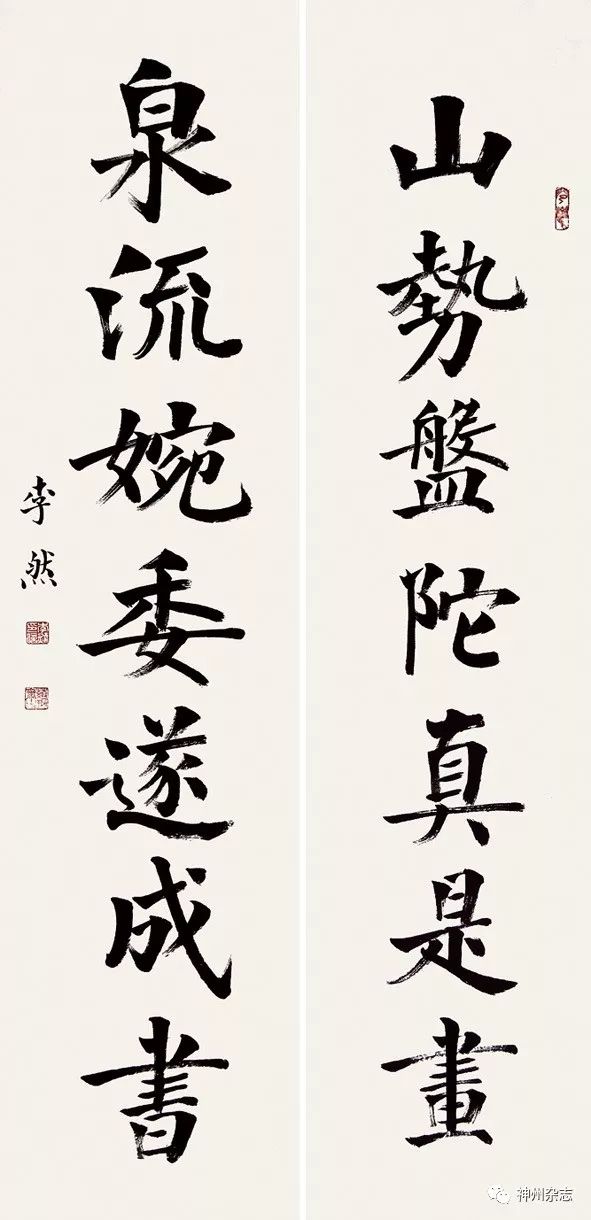 山勢盤陀真是畫
泉流婉委遂成書
李然
神州杂志